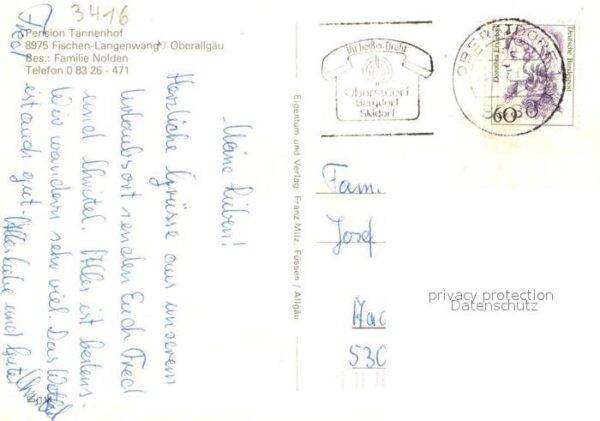 3416
Pension Tannenhof
8975 Fischen-Langenwang / Oberallgäu
Bes.: Familie Nolden
Telefon 0 83 26 - 471
Meine Lieben!
Herzliche Grüsse aus unserem
Urlaubsort senden Euch Fred
und Christel. Alles ist bestens.
Wir wandern sehr viel. Das Wetter
ist auch gut. Alles Liebe und Gute
Christel
Fred
Eigentum und Verlag: Franz Milz, Füssen / Allgäu
Ihr heißer Draht
Oberstdorf
Bergdorf
Skidorf
OBERSTDORF
Deutsche Bundespost
Dorothea Erxleben
60
Fam.
Josef
Aac
530
privacy protection
Datenschutz